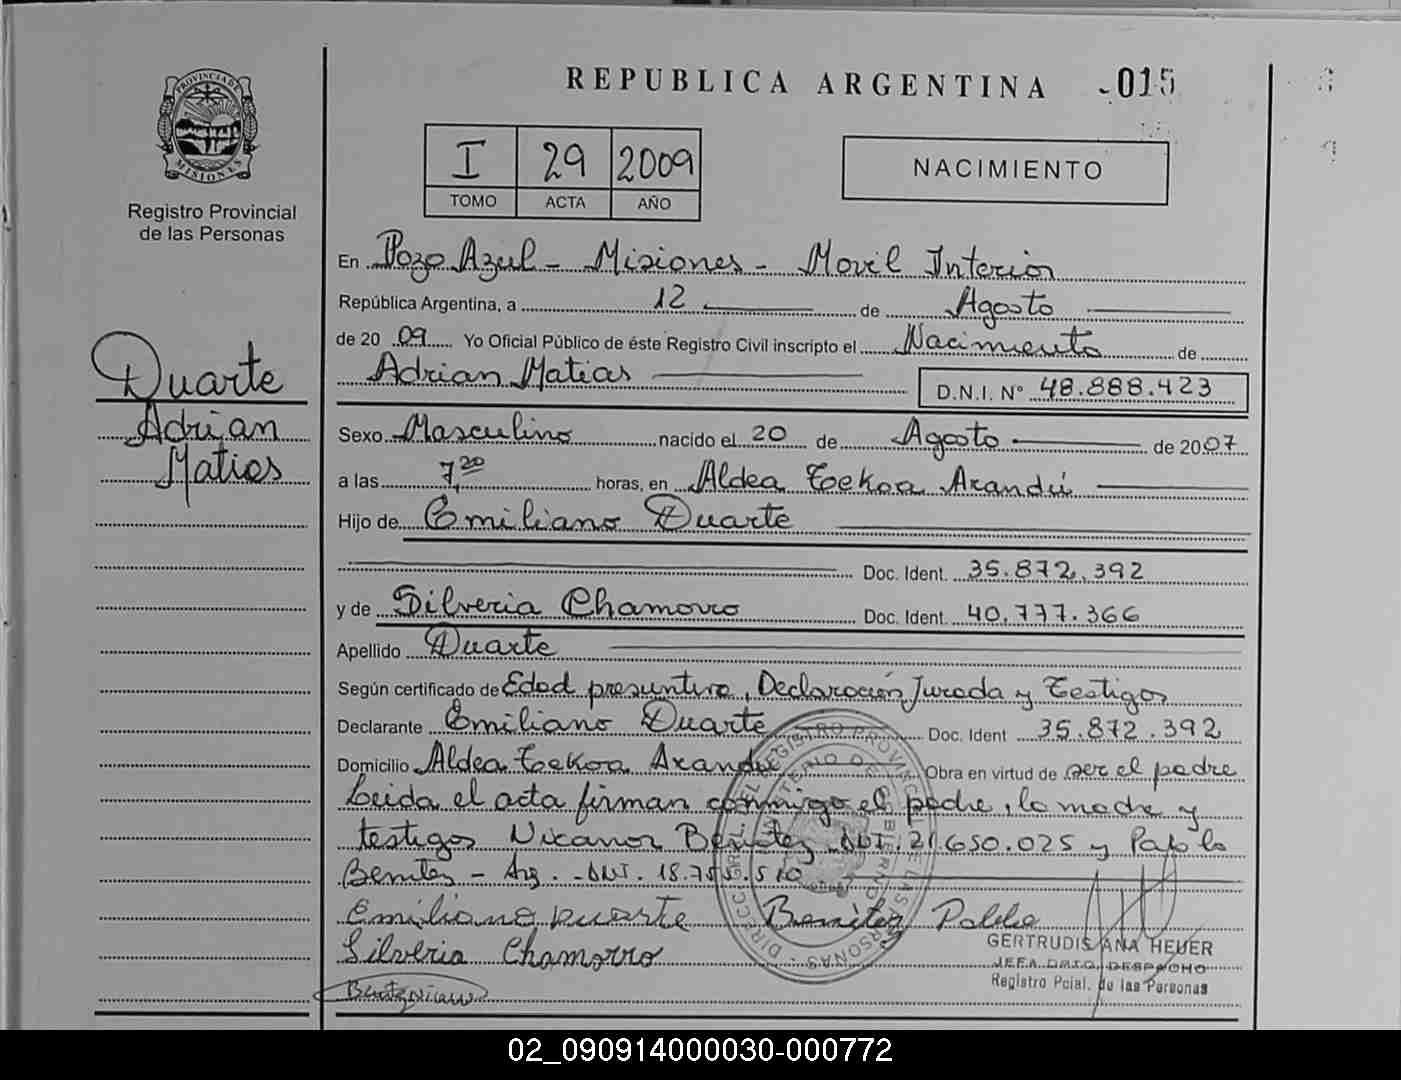 REPUBLICA ARGENTINA
-015
PROVINCIA DE
MISIONES
Registro Provincial
de las Personas
I 29 2009
TOMO ACTA AÑO
NACIMIENTO
En Pozo Azul - Misiones - Movil Interior
República Argentina, a 12 de Agosto
de 20 09 Yo Oficial Público de éste Registro Civil inscripto el Nacimiento de
Adrian Matias
D.N.I. Nº 48.888.423
Duarte
Adrian
Matias
Sexo Masculino nacido el 20 de Agosto de 2007
a las 7,20 horas, en Aldea Tekoa Arandú
Hijo de Emiliano Duarte
Doc. Ident. 35.872.392
y de Silveria Chamorro Doc. Ident. 40.777.366
Apellido Duarte
Según certificado de Edad presuntiva, Declaración Jurada y Testigos
Declarante Emiliano Duarte Doc. Ident 35.872.392
Domicilio Aldea Tekoa Arandu Obra en virtud de ser el padre
Leida el acta firman conmigo el padre, la madre y
testigos Nicanor Benitez DNI. 21.650.025 y Pablo
Benitez - Arg. - DNI. 18.755.510
Emiliano Duarte Benítez Pablo
Silveria Chamorro
GERTRUDIS ANA HEUER
JEFA DPTO. DESPACHO
Registro Pcial. de las Personas
02_090914000030-000772